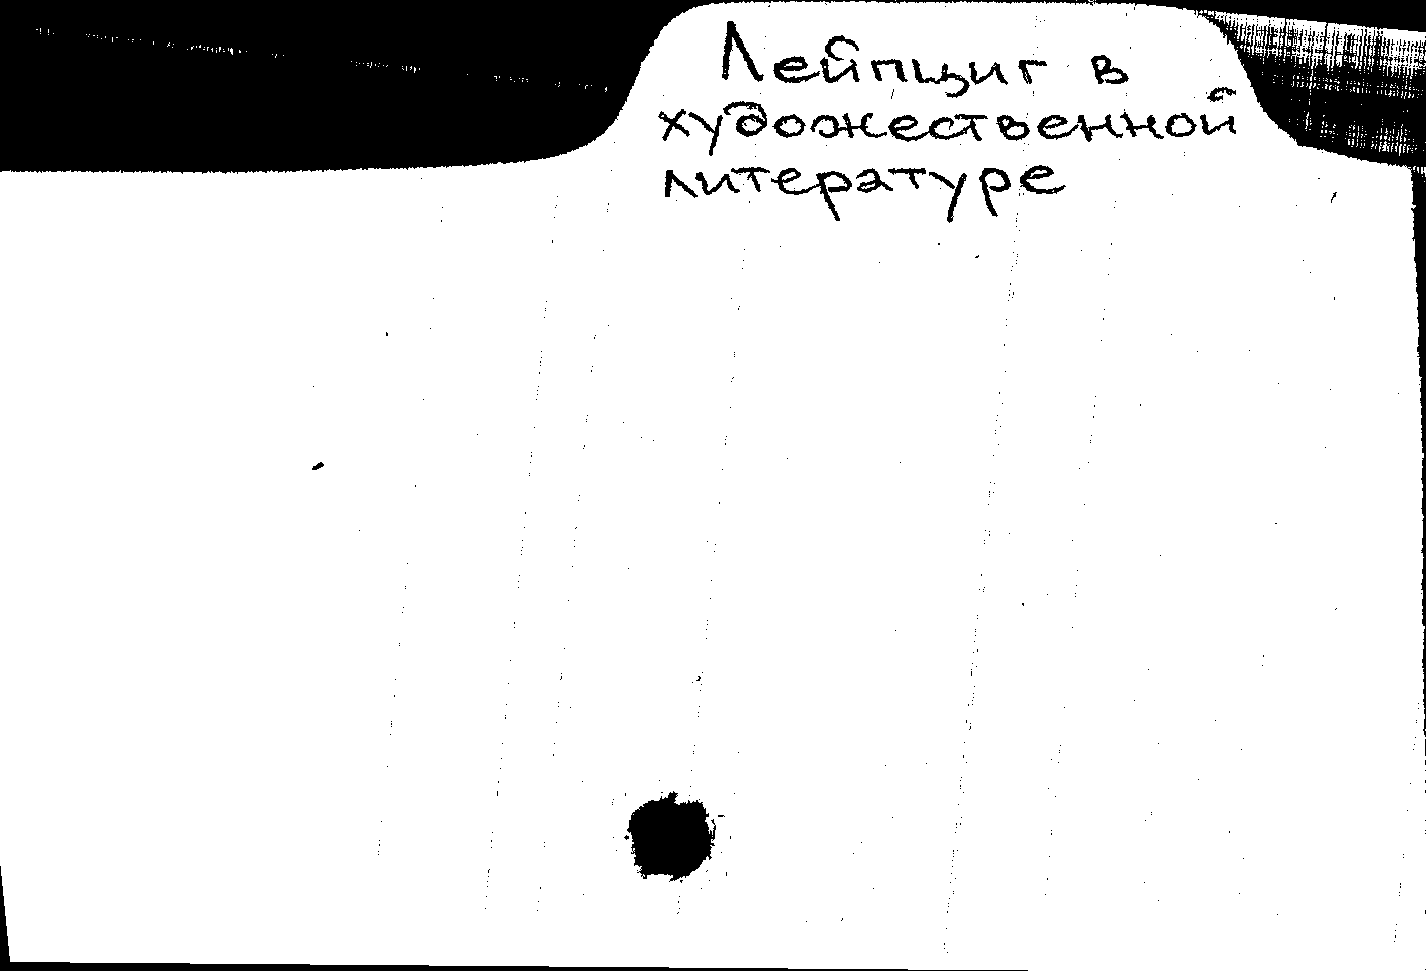 Лейпциг в
художественной
литературе